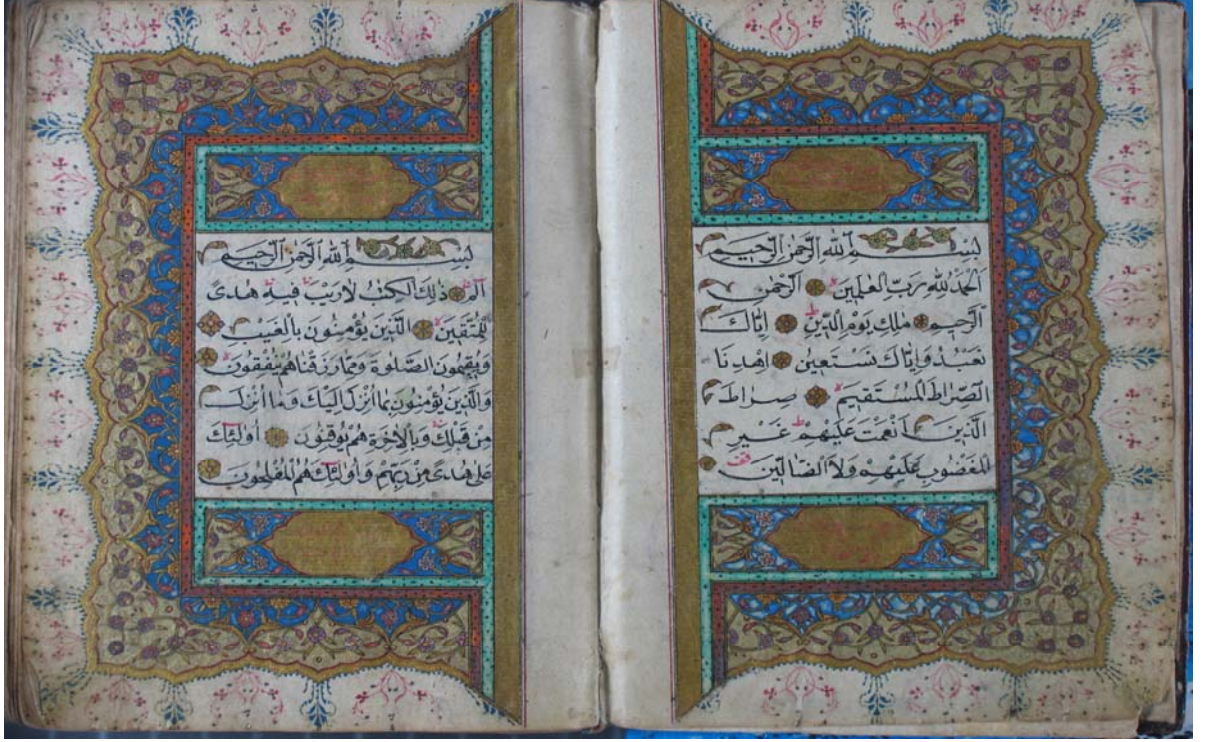 بِسْمِ اللّٰهِ الرَّحْمٰنِ الرَّحِيمِ
اَلْحَمْدُ لِلّٰهِ رَبِّ الْعٰلَمِينَ الرَّحْمٰنِ
الرَّحِيمِ مٰلِكِ يَوْمِ الدِّينِ اِيَّاكَ
نَعْبُدُ وَاِيَّاكَ نَسْتَعِينُ اِهْدِنَا
الصِّرَاطَ الْمُسْتَقِيمَ صِرَاطَ
الَّذِينَ اَنْعَمْتَ عَلَيْهِمْ غَيْرِ
الْمَغْضُوبِ عَلَيْهِمْ وَلَا الضَّالِّينَ
بِسْمِ اللّٰهِ الرَّحْمٰنِ الرَّحِيمِ
الم ذٰلِكَ الْكِتٰبُ لَا رَيْبَ فِيهِ هُدًى
لِلْمُتَّقِينَ اَلَّذِينَ يُؤْمِنُونَ بِالْغَيْبِ
وَيُقِيمُونَ الصَّلٰوةَ وَمِمَّا رَزَقْنَاهُمْ يُنْفِقُونَ
وَالَّذِينَ يُؤْمِنُونَ بِمَا اُنْزِلَ اِلَيْكَ وَمَا اُنْزِلَ
مِنْ قَبْلِكَ وَبِالْاٰخِرَةِ هُمْ يُوقِنُونَ اُولٰئِكَ
عَلٰى هُدًى مِنْ رَبِّهِمْ وَاُولٰئِكَ هُمُ الْمُفْلِحُونَ